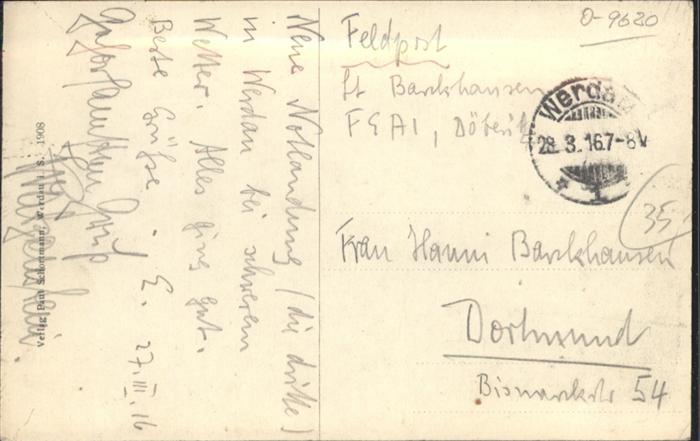 Neue Notlandung (die dritte)
in Werdau bei schwerem
Wetter. Alles ging gut.
Beste Grüße. E. 27.III.16
Gruß
Verlag Paul Schottmann, Werdau i. S. 1908
0-9620
Feldpost
Lt Barckhausen
FEA1, Döberitz
Werdau
28.3.16.7-8V
35,-
Frau Hanni Barckhausen
Dortmund
Bismarckstr 54